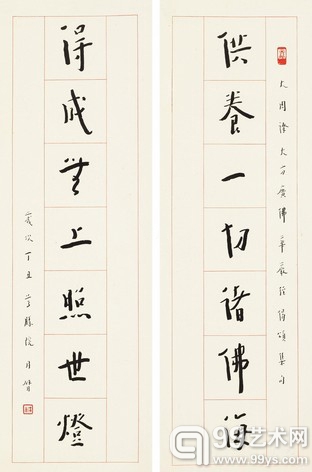 大周譯大方廣佛華嚴經偈頌集句
供養一切諸佛海
得成無上照世燈
歲次丁丑尊勝院月臂
99艺术网
www.99ys.com